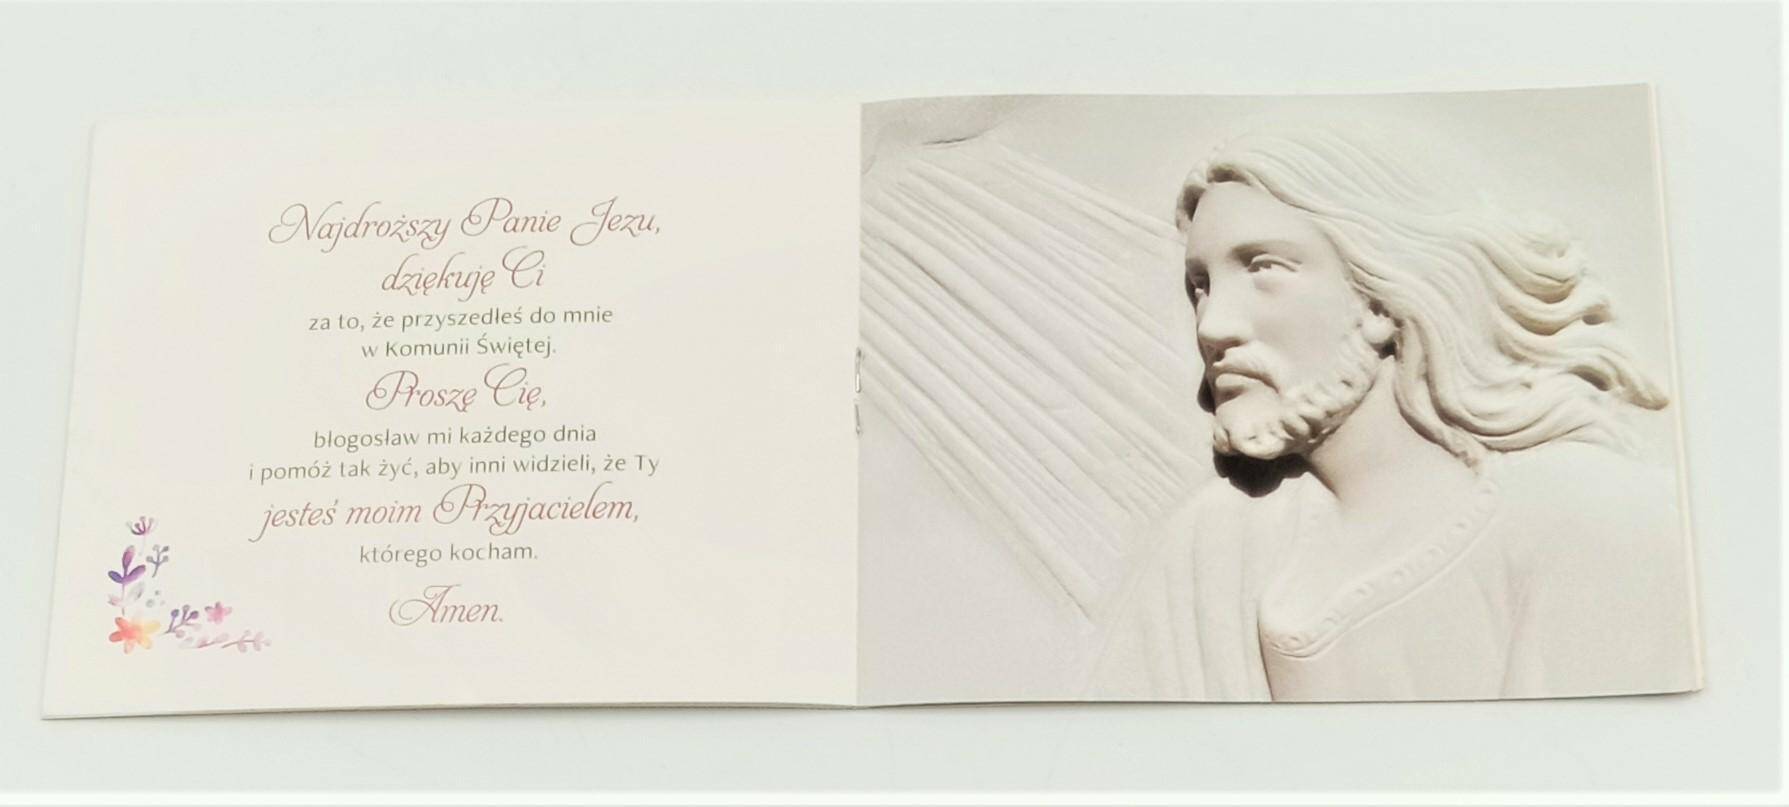 Najdroższy Panie Jezu,
dziękuję Ci
za to, że przyszedłeś do mnie
w Komunii Świętej.
Proszę Cię,
błogosław mi każdego dnia
i pomóż tak żyć, aby inni widzieli, że Ty
jesteś moim Przyjacielem,
którego kocham.
Amen.